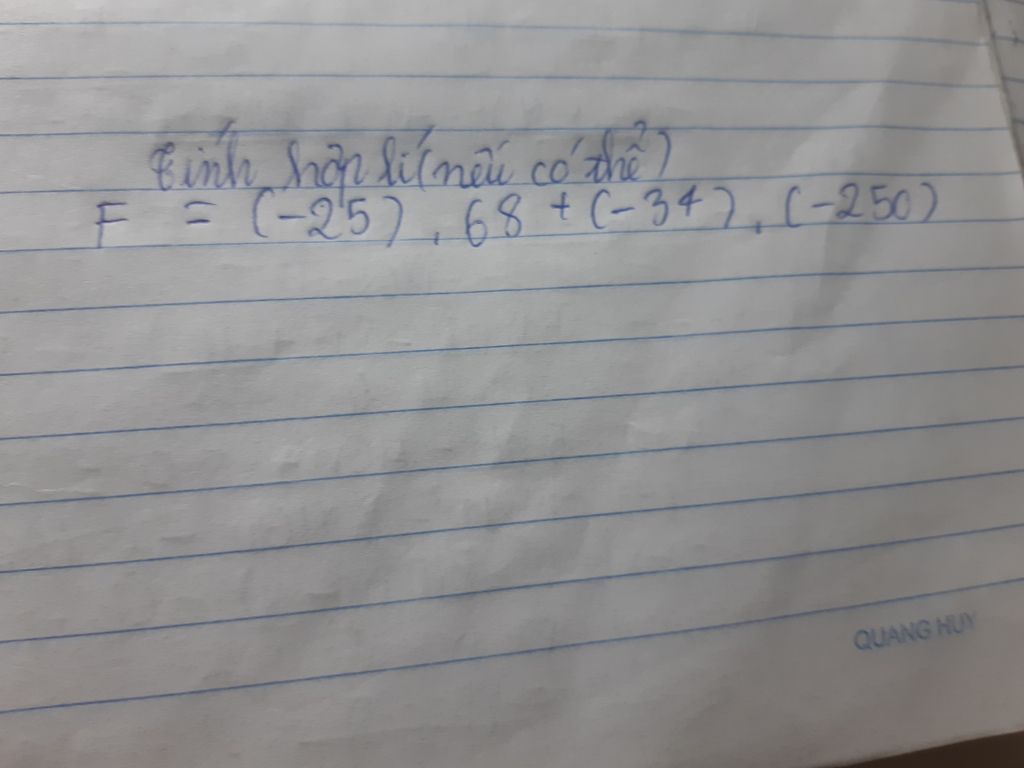 Tính hợp lí (nếu có thể)
F = (-25) . 68 + (-34) . (-250)
QUANG HUY